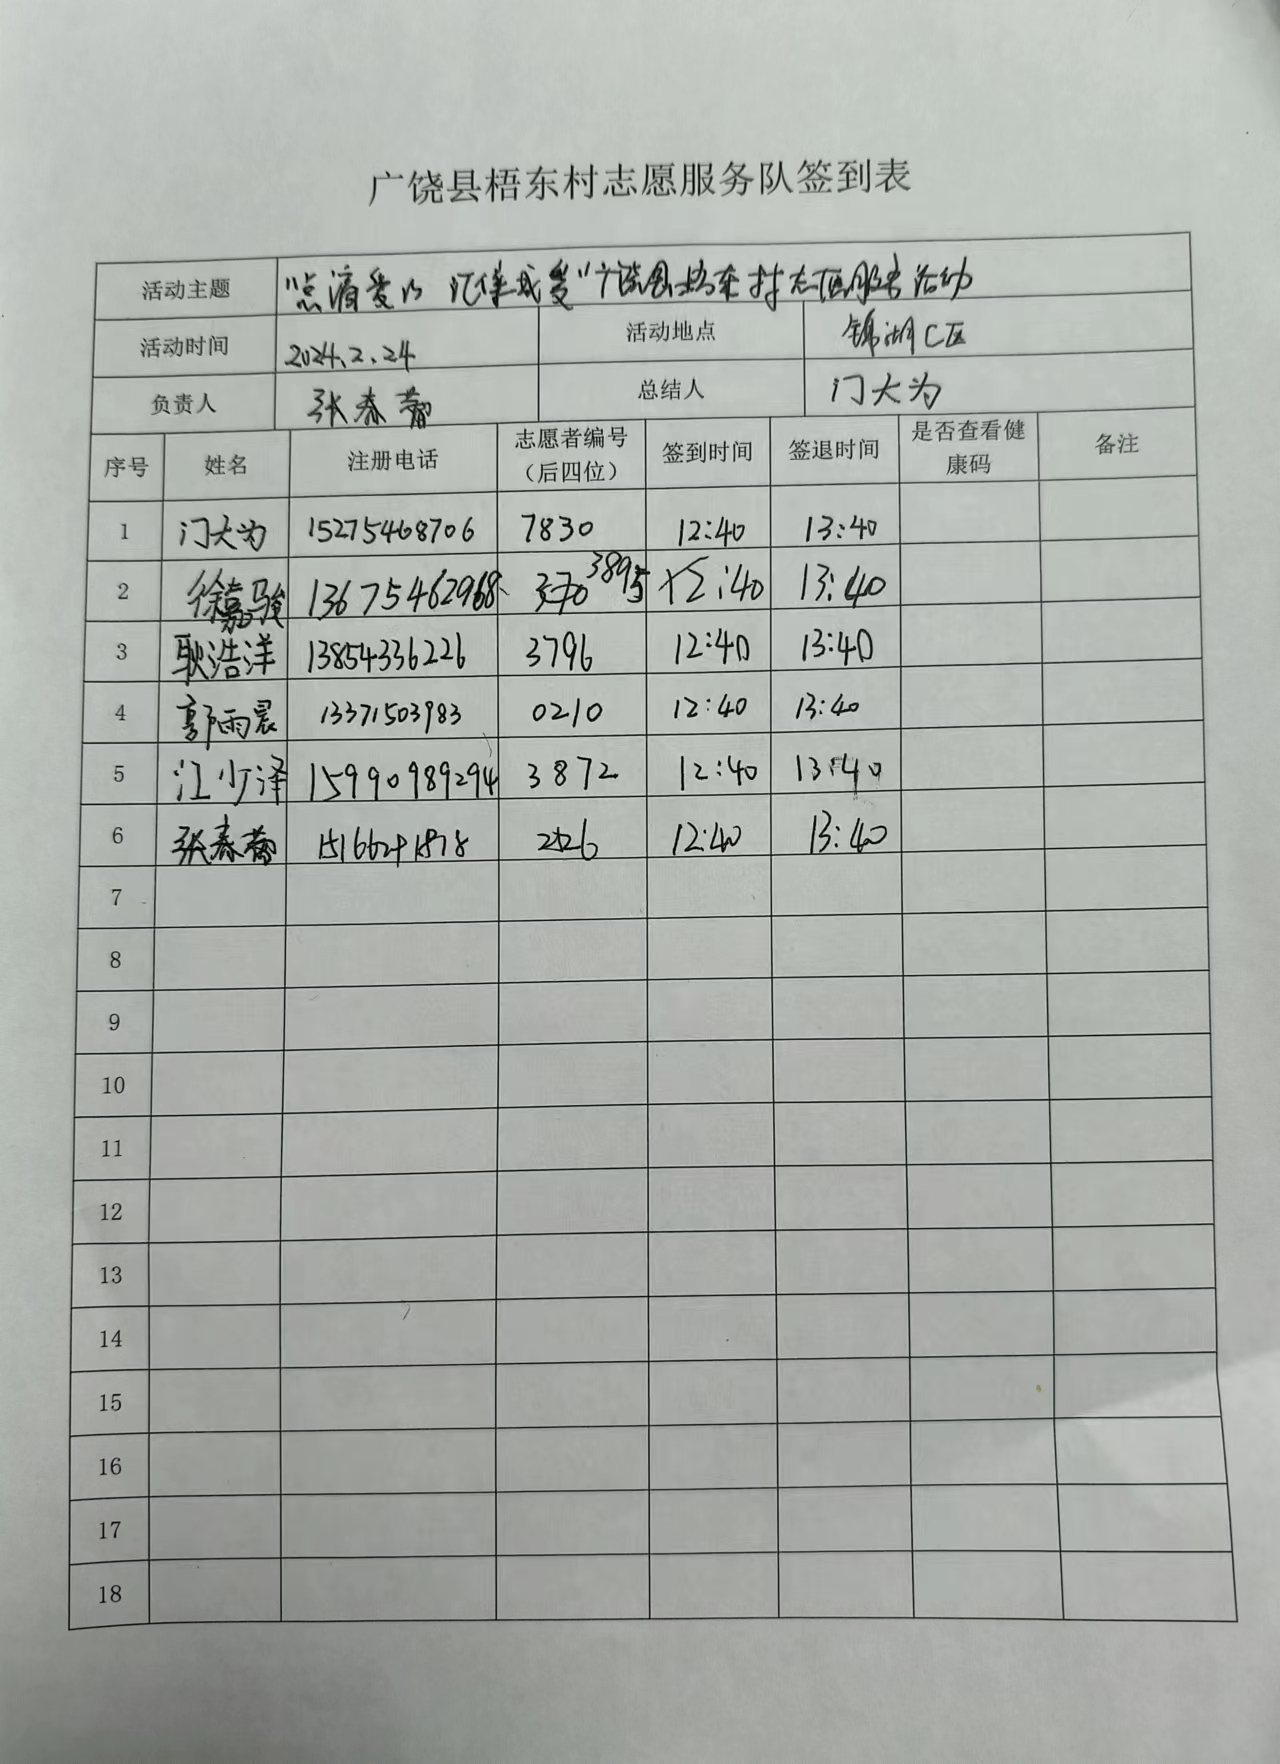 广饶县梧东村志愿服务队签到表
活动主题 "点滴爱心 汇集成爱"广饶县梧东村志愿服务活动
活动时间 2024.2.24 活动地点 锦湖C区
负责人 张春蕾 总结人 门大为
序号 姓名 注册电话 志愿者编号（后四位） 签到时间 签退时间 是否查看健康码 备注
1 门大为 15275468706 7830 12:40 13:40
2 徐嘉骏 13675462968 3895 12:40 13:40
3 耿浩洋 13854336226 3796 12:40 13:40
4 郭雨晨 13371503983 0210 12:40 13:40
5 江少泽 15990989294 3872 12:40 13:40
6 张春蕾 12:40 13:40
7
8
9
10
11
12
13
14
15
16
17
18